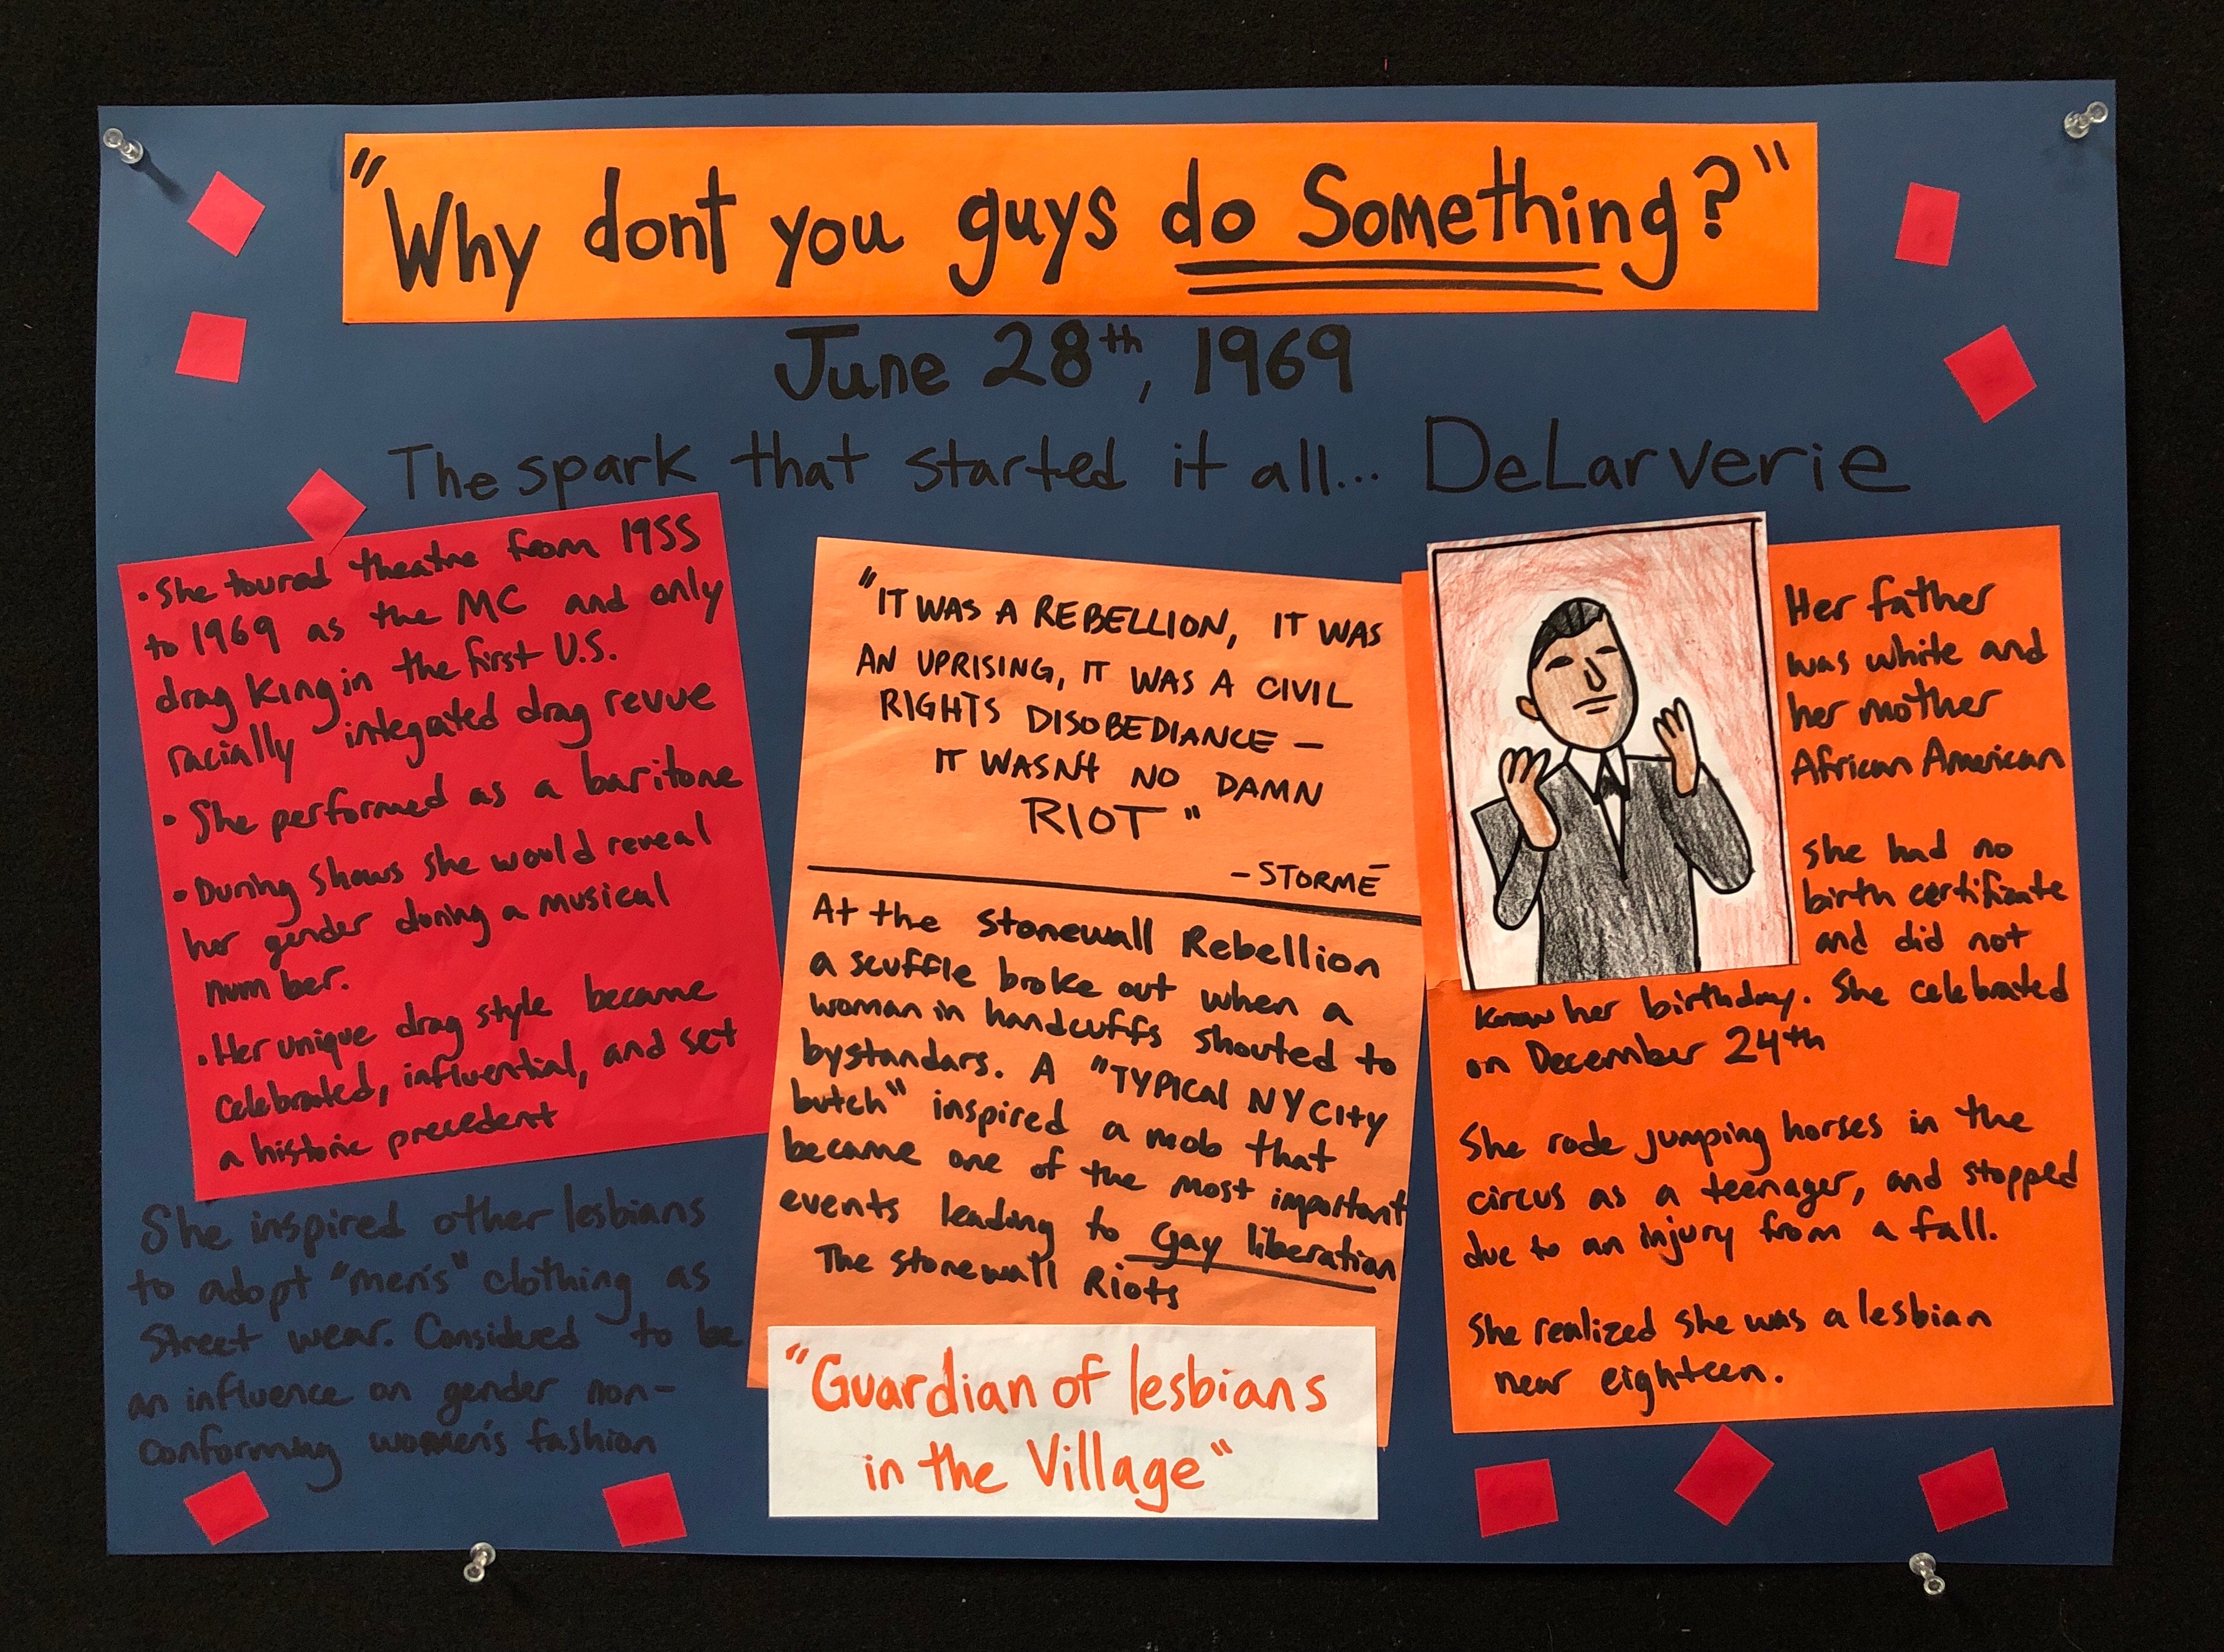 "Why dont you guys do Something?"
June 28th, 1969
The spark that started it all... DeLarverie
• She toured theatre from 1955
to 1969 as the MC and only
drag King in the first U.S.
racially integated drag revue
• She performed as a baritone
• During shows she would reveal
her gender during a musical
number.
• Her unique drag style became
celebrated, influential, and set
a historic precedent
She inspired other lesbians
to adopt "men's" clothing as
Street wear. Considered to be
an influence on gender non-
conforming women's fashion
"IT WAS A REBELLION, IT WAS
AN UPRISING, IT WAS A CIVIL
RIGHTS DISOBEDIANCE —
IT WASN't NO DAMN
RIOT"
- STORMÉ
At the Stonewall Rebellion
a scuffle broke out when a
woman in handcuffs shouted to
bystandars. A "TYPICAL NY CITY
butch" inspired a mob that
became one of the most important
events leading to Gay liberation
The stonewall Riots
"Guardian of lesbians
in the Village"
Her father
was white and
her mother
African American
She had no
birth certificate
and did not
know her birthday. She celebrated
on December 24th
She rode jumping horses in the
circus as a teenager, and stopped
due to an injury from a fall.
She realized she was a lesbian
near eighteen.